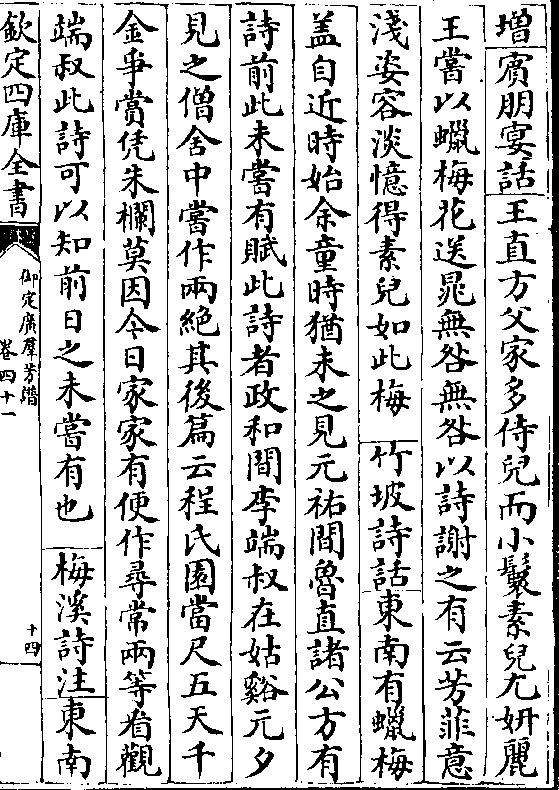 增賔朋宴話王直方父家多侍兒而小鬟素兒尤妍麗
王嘗以蠟梅花送晁無咎無咎以詩謝之有云芳菲意
淺姿容淡憶得素兒如此梅 竹坡詩話東南有蠟梅
盖自近時始余童時猶未之見元祐間魯直諸公方有
詩前此未嘗有賦此詩者政和間李端叔在姑谿元夕
見之僧舍中嘗作兩絕其後篇云程氏園當尺五天千
金爭賞凭朱欄莫因今日家家有便作尋常兩等看觀
端叔此詩可以知前日之未嘗有也 梅溪詩注東南
欽定四庫全書
御定廣羣芳譜
卷四十一
十四